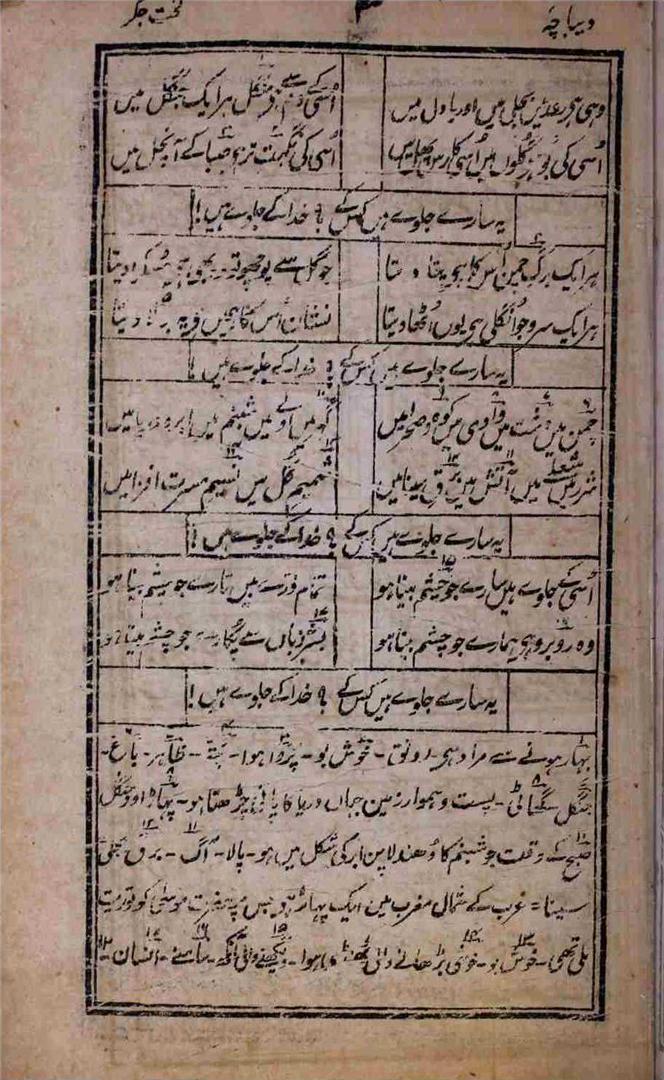 دیباچہ
۴
لخت جگر
وہی ہے رعد میں بجلی میں اور بادل میں
اُسی کے دم سے ہے منگل ہر ایک جنگل میں
اُسی کی بو ہے گلوں میں اُسی کا رس پھل میں
اُسی کی نکہت تر ہے صبا کے آنچل میں
یہ سارے جلوے ہیں کس کے ؟ خدا کے جلوے ہیں!
ہر ایک برگ چمن اُس کا ہے پتا دیتا
جو گل سے پوچھو تو وہ بھی ہے مسکرا دیتا
ہر ایک سرو جو اُنگلی ہے یوں اُٹھا دیتا
نشان اُس کا ہمیں وہ ہے برملا دیتا
یہ سارے جلوے ہیں کس کے ؟ خدا کے جلوے ہیں!
چمن میں دشت میں وادی میں کوہ و صحرا میں
گہر میں اولے میں شبنم میں ابر و دریا میں
شرر میں شعلے میں آتش میں برق سینا میں
شمیم گل میں نسیم مسرت افزا میں
یہ سارے جلوے ہیں کس کے ؟ خدا کے جلوے ہیں!
اُسی کے جلوے ہیں سارے جو چشم بینا ہو
تمام ذرے ہیں تارے جو چشم بینا ہو
وہ روبرو ہے ہمارے جو چشم بینا ہو
بشر زباں سے پکارے جو چشم بینا ہو
یہ سارے جلوے ہیں کس کے ؟ خدا کے جلوے ہیں!
بہار ہونے سے مراد ہے رونق - خوش بو - پروا ہوا - پتہ - ظاہر - باغ -
جنگل گھاٹی - پست و ہموار زمین جہاں دریا کا پانی چڑھتا ہو - پہاڑ اور جنگل
صبح کے وقت جو شبنم کا دُھندلا پن ابر کی شکل میں ہو - پالا - آگ - برق بجلی
سینا = عرب کے شمال مغرب میں ایک پہاڑ ہے جس پر حضرت موسیٰ کو توریت
ملی تھی - خوش بو - خوشی بڑھانے والی ٹھنڈی ہوا - دیکھنے والی آنکھ - سامنے - انسان - ۱۲